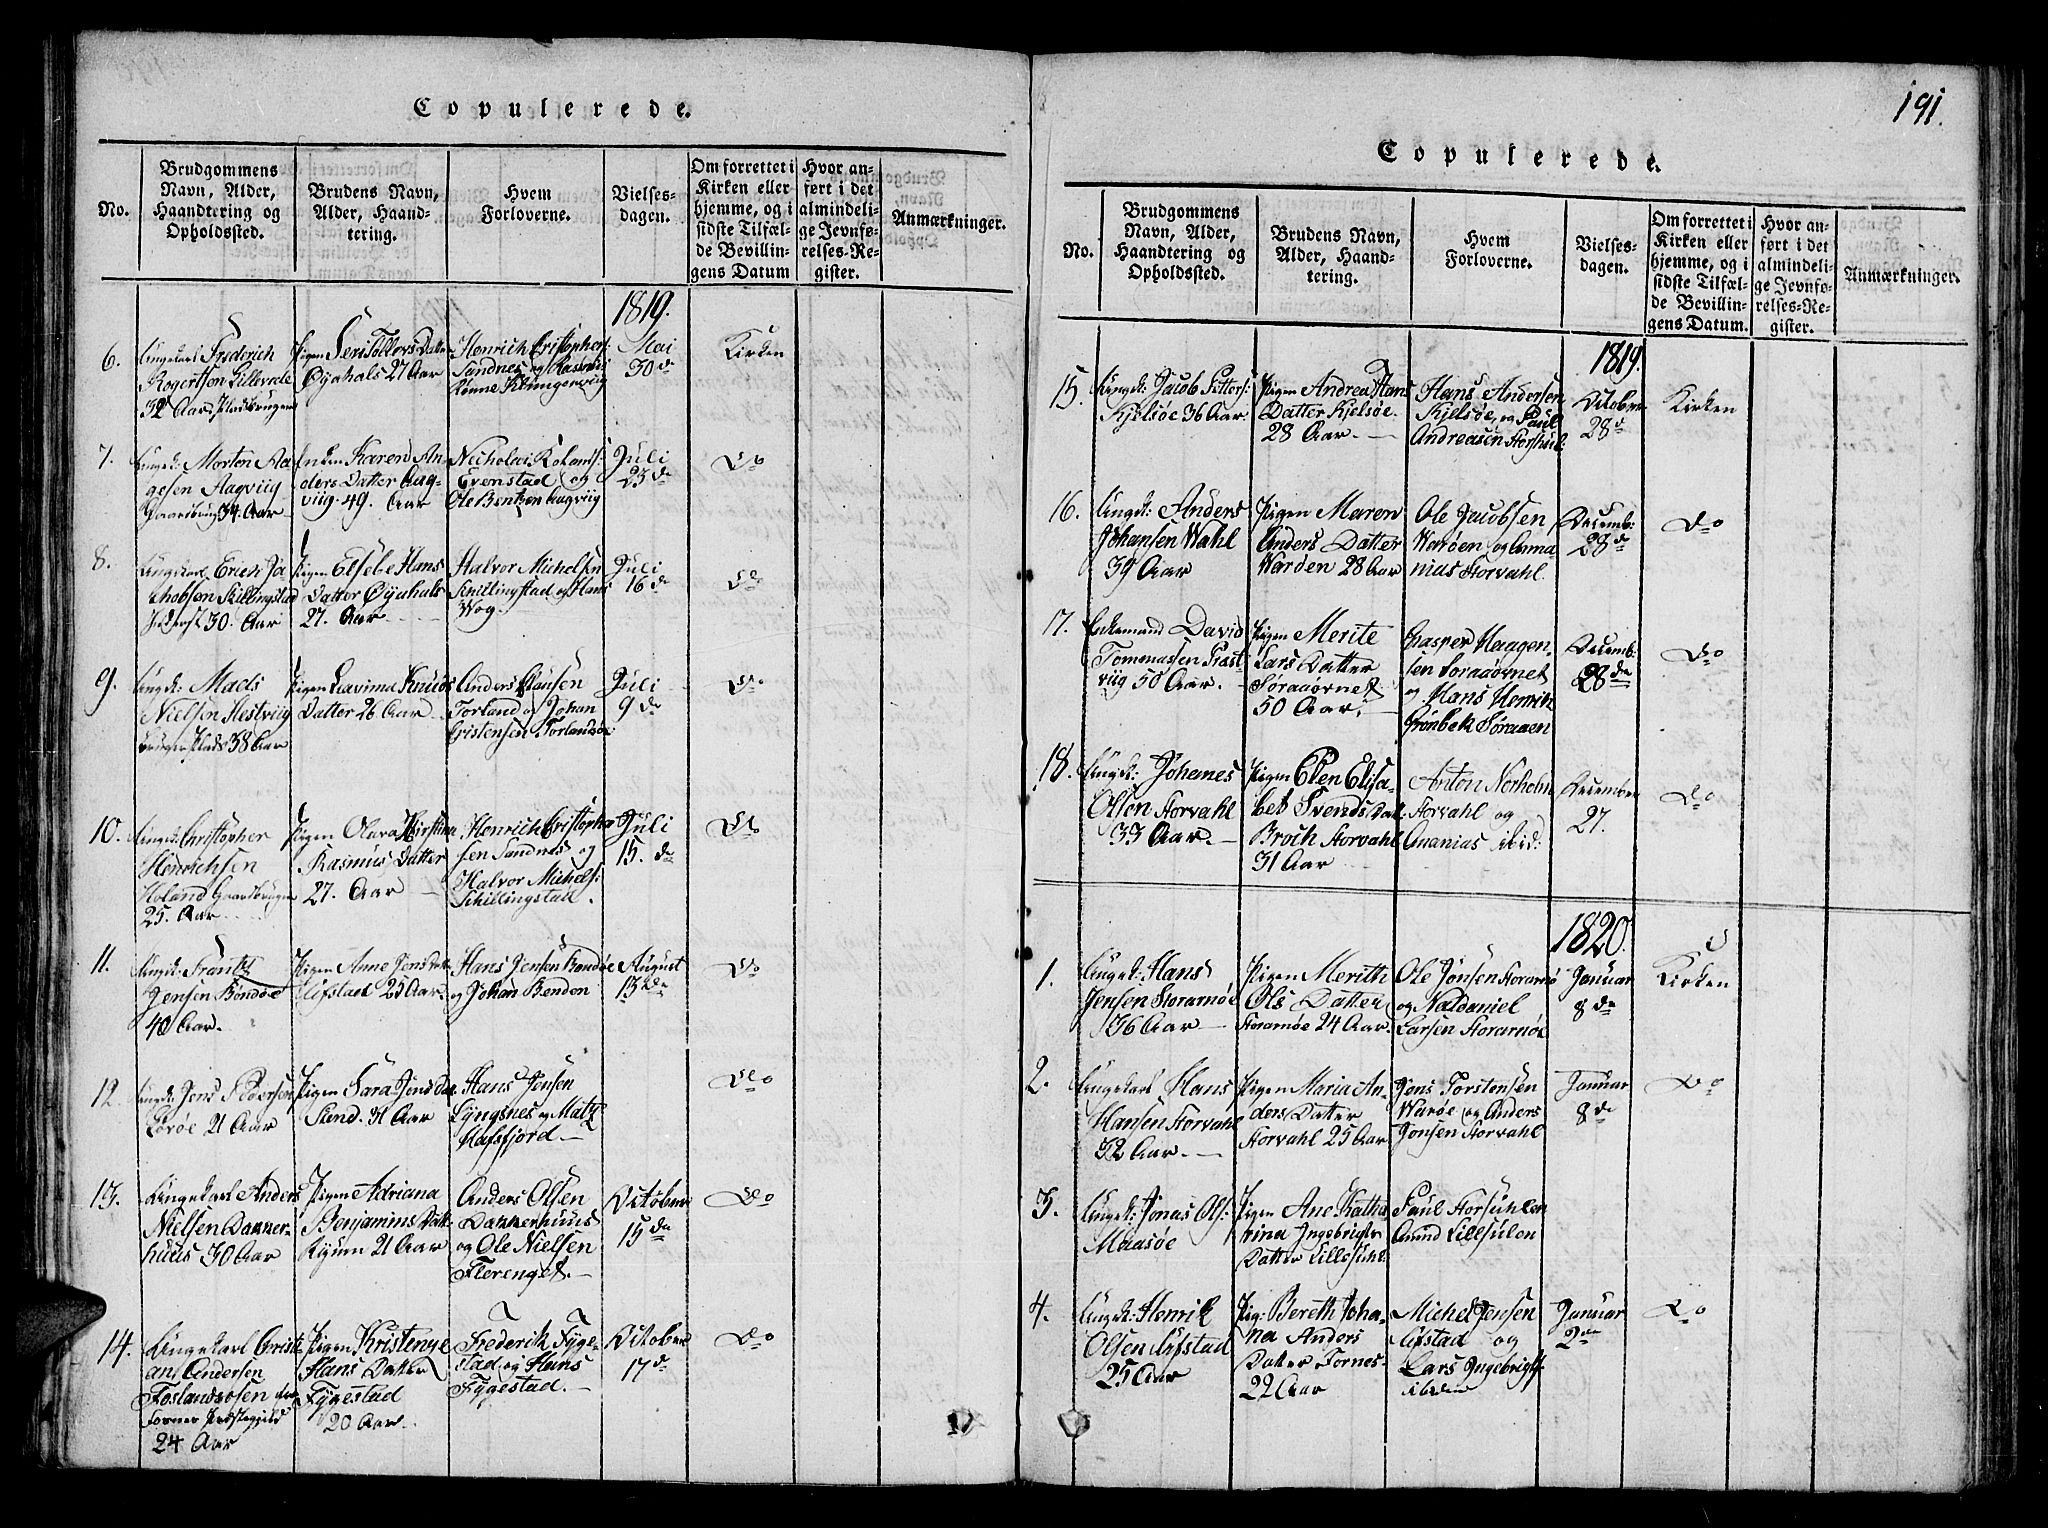 Copulerede.
No.
Brudgommens Navn, Alder, Haandtering og Opholdssted.
Brudens Navn, Alder, Haandtering.
Hvem Forloverne.
Vielsesdagen.
Om forrettet i Kirken eller hjemme, og i sidste Tilfælde Bevillingens Datum
Hvor anført i det almindelige Jevnførelses-Register.
Anmærkninger.
1819.
6.
Frederich
32 Aar
Øyahals 27 Aar
Henrich Cristophers:
Sandnes og
Mai
30 de
Kirken
7.
Ungk: Morten Aa
gesen Aagviig
34 Aar
Enken Karen An
ders Datter Aag
viig 49. Aar
Evenstad og
Ole Bentzen Aagviig
Juli
25 de
Do
8.
30. Aar
Pigen Elsebe Hans
Datter Øyahals
27. Aar
Halvor Michelsen
Schillingstad og Hans
Wog
Juli
16 de
Do
9.
Ungk: Mads
Nielsen Hestviig
bruger Plads 38 Aar
Pigen Lavima Knuds
Datter 26 Aar
Anders Clausen
Torland og Johan
Cristensen
Juli
9 de
Do
10.
Ungk: Christopher
Henrichsen
Holand Gaardbruger
25. Aar
Pigen Olava Kirstina
Rasmus Datter
27. Aar
Henrich Cristopher
sen Sandnes og
Halvor Michels:
Schillingstad.
Juli
15. de
Do
11.
Ungk: Frantz
Jensen Bondøe
40 Aar.
Pigen Anne Jens Datt
Lifstad 25 Aar.
Hans Jensen Bondøe
og Johan Benden
August
13 de
Do
12.
Ungk: Jens Pedersen
21 Aar
Pigen Sara Jens Da
Stend. 31 Aar
Hans Jensen
Lyngsnes og Matz
Hafsfjord.
Do
13.
Ungekarl Anders
Nielsen Danner-
huus 30 Aar
Pigen Adriana
Benjamins Datt
Ryum 21 Aar
Anders Olsen
Dannerhuus
og Ole Nielsen
Flerenget.
October
15 de
Do
14.
Ungekarl Cristi
an Andersen
Foslandsosen
24 Aar
Pigen Kristenge
Hans Datter
Fygestad
20 Aar.
Frederik Fyge
stad og Hans
Fygestad.
October
17 de
Do
191.
Copulerede.
No.
Brudgommens Navn, Alder, Haandtering og Opholdssted.
Brudens Navn, Alder, Haandtering.
Hvem Forloverne.
Vielsesdagen.
Om forrettet i Kirken eller hjemme, og i sidste Tilfælde Bevillingens Datum.
Hvor anført i det almindelige Jevnførelses-Register.
Anmærkninger.
1819.
15.
Ungk: Jacob Petters:
Kjelsøe 36 Aar.
Pigen Andrea Hans
Datter Kjelsøe.
28 Aar.
Hans Andersen
Kjelsøe, og Paul
Andreasen
October
28 d
Kirken
16.
Ungk: Anders
Johansen Wahl
39 Aar
Pigen Maren
Anders Datter
Warøen 28 Aar
Ole Jacobsen
Warøen og Anna
nias Storvahl.
Decemb:
28 de
Do
17.
Enkemand David
viig 50 Aar.
Pigen Merite
Lars Datter
50 Aar.
Casper Haagen-
og Hans Henrik
Grønbek
Decemb:
28 de
Do
18.
Ungk: Johanes
Olsen Storvahl
33 Aar
Pigen Elen Elisa-
bet Svends Datt
Broch Storvahl
31 Aar
Anton Norholm
Storvahl og
Ananias ibid:
December
27.
Do
1820.
1.
Ungk: Hans
Jensen Storarnøe
36 Aar
Pigen Merith
Ols Datter
Storarnøe 24 Aar.
Ole Jensen Storarnø
og Natdaniel
Larsen Storarnøe
Januar
8 de
Kirken
2.
Ungekarl Hans
Hansen Storvahl
32 Aar.
Pigen Maria An-
ders Datter
Storvahl 25 Aar
Jens Torstensen
Warøe og Anders
Jensen Storvahl
Januar
8 de
Do
3.
Ungk: Jonas Ols:
Maasøe
Pigen Ane Katha
rina Ingebrigts
Datter
Paul Storsuhlen
Lillesulen
4.
Ungk: Henrik
Olsen Lifstad
25 Aar
Pig: Bereth Joha-
na Anders
Datter Fornes
22 Aar
Michel Jensen
Lifstad og
Lars Ingebrigts
ibidem
Januar
2 de
Do